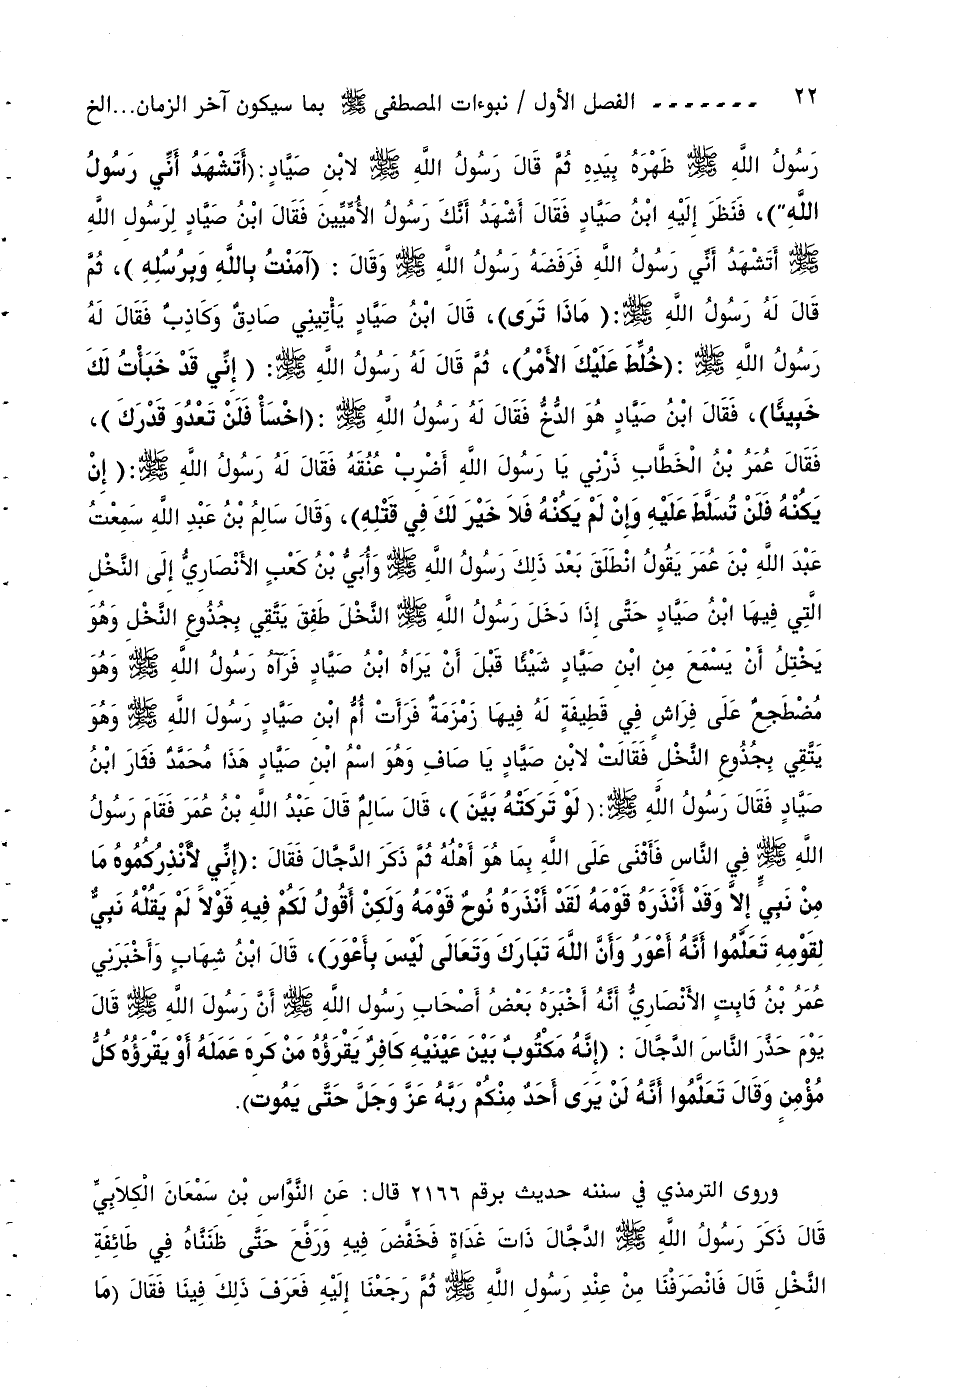 ٢٢ ------- الفصل الأول / نبوءات المصطفى ﷺ بما سيكون آخر الزمان...الخ
رَسُولُ اللَّهِ ﷺ ظَهْرَهُ بِيَدِهِ ثُمَّ قَالَ رَسُولُ اللَّهِ ﷺ لابْنِ صَيَّادٍ:(أَتَشْهَدُ أَنِّي رَسُولُ
اللَّهِ")، فَنَظَرَ إِلَيْهِ ابْنُ صَيَّادٍ فَقَالَ أَشْهَدُ أَنَّكَ رَسُولُ الأُمِّيِّينَ فَقَالَ ابْنُ صَيَّادٍ لِرَسُولِ اللَّهِ
ﷺ أَتَشْهَدُ أَنِّي رَسُولُ اللَّهِ فَرَفَضَهُ رَسُولُ اللَّهِ ﷺ وَقَالَ : (آمَنْتُ بِاللَّهِ وَبِرُسُلِهِ )، ثُمَّ
قَالَ لَهُ رَسُولُ اللَّهِ ﷺ:( مَاذَا تَرَى)، قَالَ ابْنُ صَيَّادٍ يَأْتِينِي صَادِقٌ وَكَاذِبٌ فَقَالَ لَهُ
رَسُولُ اللَّهِ ﷺ :(خُلِّطَ عَلَيْكَ الأَمْرُ)، ثُمَّ قَالَ لَهُ رَسُولُ اللَّهِ ﷺ: ( إِنِّي قَدْ خَبَأْتُ لَكَ
خَبِيئًا)، فَقَالَ ابْنُ صَيَّادٍ هُوَ الدُّخُّ فَقَالَ لَهُ رَسُولُ اللَّهِ ﷺ :(اخْسَأْ فَلَنْ تَعْدُوَ قَدْرَكَ )،
فَقَالَ عُمَرُ بْنُ الْخَطَّابِ ذَرْنِي يَا رَسُولَ اللَّهِ أَضْرِبْ عُنُقَهُ فَقَالَ لَهُ رَسُولُ اللَّهِ ﷺ:( إِنْ
يَكُنْهُ فَلَنْ تُسَلَّطَ عَلَيْهِ وَإِنْ لَمْ يَكُنْهُ فَلاَ خَيْرَ لَكَ فِي قَتْلِهِ)، وَقَالَ سَالِمُ بْنُ عَبْدِ اللَّهِ سَمِعْتُ
عَبْدَ اللَّهِ بْنَ عُمَرَ يَقُولُ انْطَلَقَ بَعْدَ ذَلِكَ رَسُولُ اللَّهِ ﷺ وَأُبَيُّ بْنُ كَعْبٍ الأَنْصَارِيُّ إِلَى النَّخْلِ
الَّتِي فِيهَا ابْنُ صَيَّادٍ حَتَّى إِذَا دَخَلَ رَسُولُ اللَّهِ ﷺ النَّخْلَ طَفِقَ يَتَّقِي بِجُذُوعِ النَّخْلِ وَهُوَ
يَخْتِلُ أَنْ يَسْمَعَ مِنِ ابْنِ صَيَّادٍ شَيْئًا قَبْلَ أَنْ يَرَاهُ ابْنُ صَيَّادٍ فَرَآهُ رَسُولُ اللَّهِ ﷺ وَهُوَ
مُضْطَجِعٌ عَلَى فِرَاشٍ فِي قَطِيفَةٍ لَهُ فِيهَا زَمْزَمَةٌ فَرَأَتْ أُمُّ ابْنِ صَيَّادٍ رَسُولَ اللَّهِ ﷺ وَهُوَ
يَتَّقِي بِجُذُوعِ النَّخْلِ فَقَالَتْ لابْنِ صَيَّادٍ يَا صَافِ وَهُوَ اسْمُ ابْنِ صَيَّادٍ هَذَا مُحَمَّدٌ فَثَارَ ابْنُ
صَيَّادٍ فَقَالَ رَسُولُ اللَّهِ ﷺ:( لَوْ تَرَكَتْهُ بَيَّنَ )، قَالَ سَالِمٌ قَالَ عَبْدُ اللَّهِ بْنُ عُمَرَ فَقَامَ رَسُولُ
اللَّهِ ﷺ فِي النَّاسِ فَأَثْنَى عَلَى اللَّهِ بِمَا هُوَ أَهْلُهُ ثُمَّ ذَكَرَ الدَّجَّالَ فَقَالَ :(إِنِّي لأُنْذِرُكُمُوهُ مَا
مِنْ نَبِيٍّ إِلاَّ وَقَدْ أَنْذَرَهُ قَوْمَهُ لَقَدْ أَنْذَرَهُ نُوحٌ قَوْمَهُ وَلَكِنْ أَقُولُ لَكُمْ فِيهِ قَوْلاً لَمْ يَقُلْهُ نَبِيٌّ
لِقَوْمِهِ تَعَلَّمُوا أَنَّهُ أَعْوَرُ وَأَنَّ اللَّهَ تَبَارَكَ وَتَعَالَى لَيْسَ بِأَعْوَرَ)، قَالَ ابْنُ شِهَابٍ وَأَخْبَرَنِي
عُمَرُ بْنُ ثَابِتٍ الأَنْصَارِيُّ أَنَّهُ أَخْبَرَهُ بَعْضُ أَصْحَابِ رَسُولِ اللَّهِ ﷺ أَنَّ رَسُولَ اللَّهِ ﷺ قَالَ
يَوْمَ حَذَّرَ النَّاسَ الدَّجَّالَ : (إِنَّهُ مَكْتُوبٌ بَيْنَ عَيْنَيْهِ كَافِرٌ يَقْرَؤُهُ مَنْ كَرِهَ عَمَلَهُ أَوْ يَقْرَؤُهُ كُلُّ
مُؤْمِنٍ وَقَالَ تَعَلَّمُوا أَنَّهُ لَنْ يَرَى أَحَدٌ مِنْكُمْ رَبَّهُ عَزَّ وَجَلَّ حَتَّى يَمُوتَ).
وروى الترمذي في سننه حديث برقم ٢١٦٦ قال: عَنِ النَّوَّاسِ بْنِ سَمْعَانَ الْكِلاَبِيِّ
قَالَ ذَكَرَ رَسُولُ اللَّهِ ﷺ الدَّجَّالَ ذَاتَ غَدَاةٍ فَخَفَّضَ فِيهِ وَرَفَّعَ حَتَّى ظَنَنَّاهُ فِي طَائِفَةِ
النَّخْلِ قَالَ فَانْصَرَفْنَا مِنْ عِنْدِ رَسُولِ اللَّهِ ﷺ ثُمَّ رَجَعْنَا إِلَيْهِ فَعَرَفَ ذَلِكَ فِينَا فَقَالَ (مَا